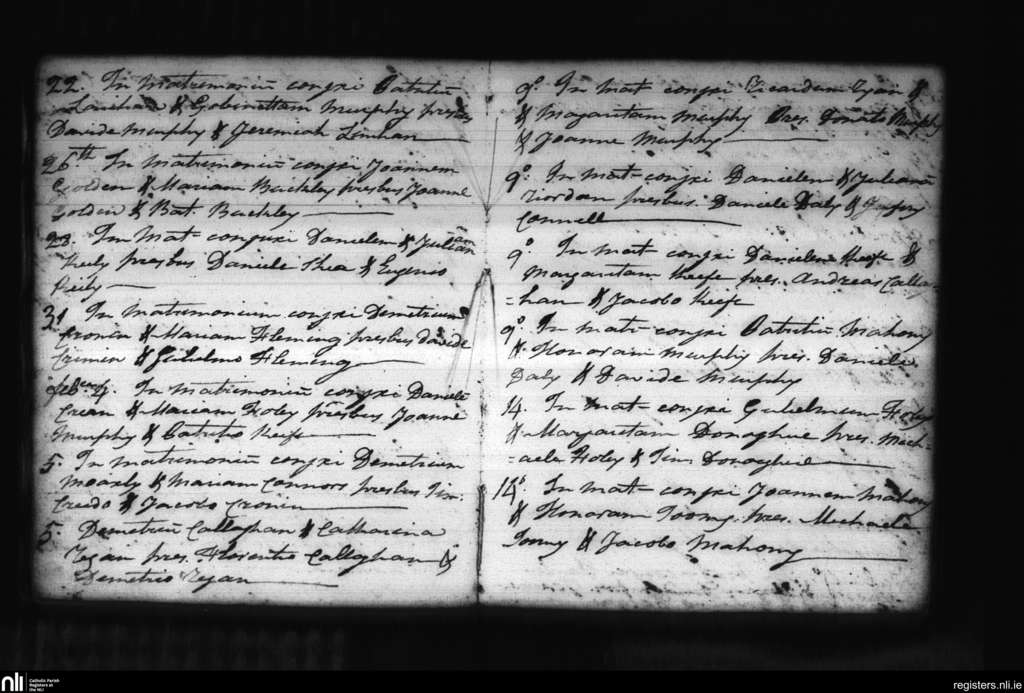 22. In matrimoniū conjxi Patritiū
Linehan & Gobinettam Murphy presbus
Davide Murphy & Jeremiah Linhan
26th In matrimoniū conjxi Joannem
Golden & Mariam Buckley presbus Joanne
Golden & Bat. Buckley
28. In Mat- conjuxi Danielem & Julianam
Reily presbus Daniele Shea & Eugenio
Reily
31 In matrimonium conjxi Demetrium
Cronin & Mariam Fleming presbus Davide
Cronin & Gulielmo Fleming
Febry 4. In matrimoniū conjxi Daniele
Crean & Mariam Foley presbus Joanne
Murphy & Patritio Keife
5. In matrimoniū conjxi Demetrium
Moaxly & Mariam Connors presbus Tim:
Creedo & Jacobo Cronin
5. Demetriū Callaghan & Catharina
Regan pres. Florentio Callaghan &
Demetrio Regan
9o In mat- conjxi Ricardum Ryan
& Magaritam Murphy Pres. Donato Murphy
& Joanne Murphy
9o. In mat- conjxi Danielem & Julianā
Riordan presbus. Daniele Daly &
Connell
9o In mat- conjxi Danielem Keefe &
Margaritam Keefe pres. Andreas Calla
=han & Jacobo Keefe
9o In mat- conjxi Patritiū Mahony
& Honoram Murphy pres. Daniele
Daly & Davide Murphy
14. In Mat- conjxi Gulielmum Foley
& Margaritam Donoghue pres. Mich-
=aele Foley & Tim Donoghue
14o. In mat- conjxi Joannem Mahony
& Honoram Toomy. pres. Michaele
Tomy & Jacobo Mahony
nli
Catholic Parish
Registers at
the NLI
registers.nli.ie